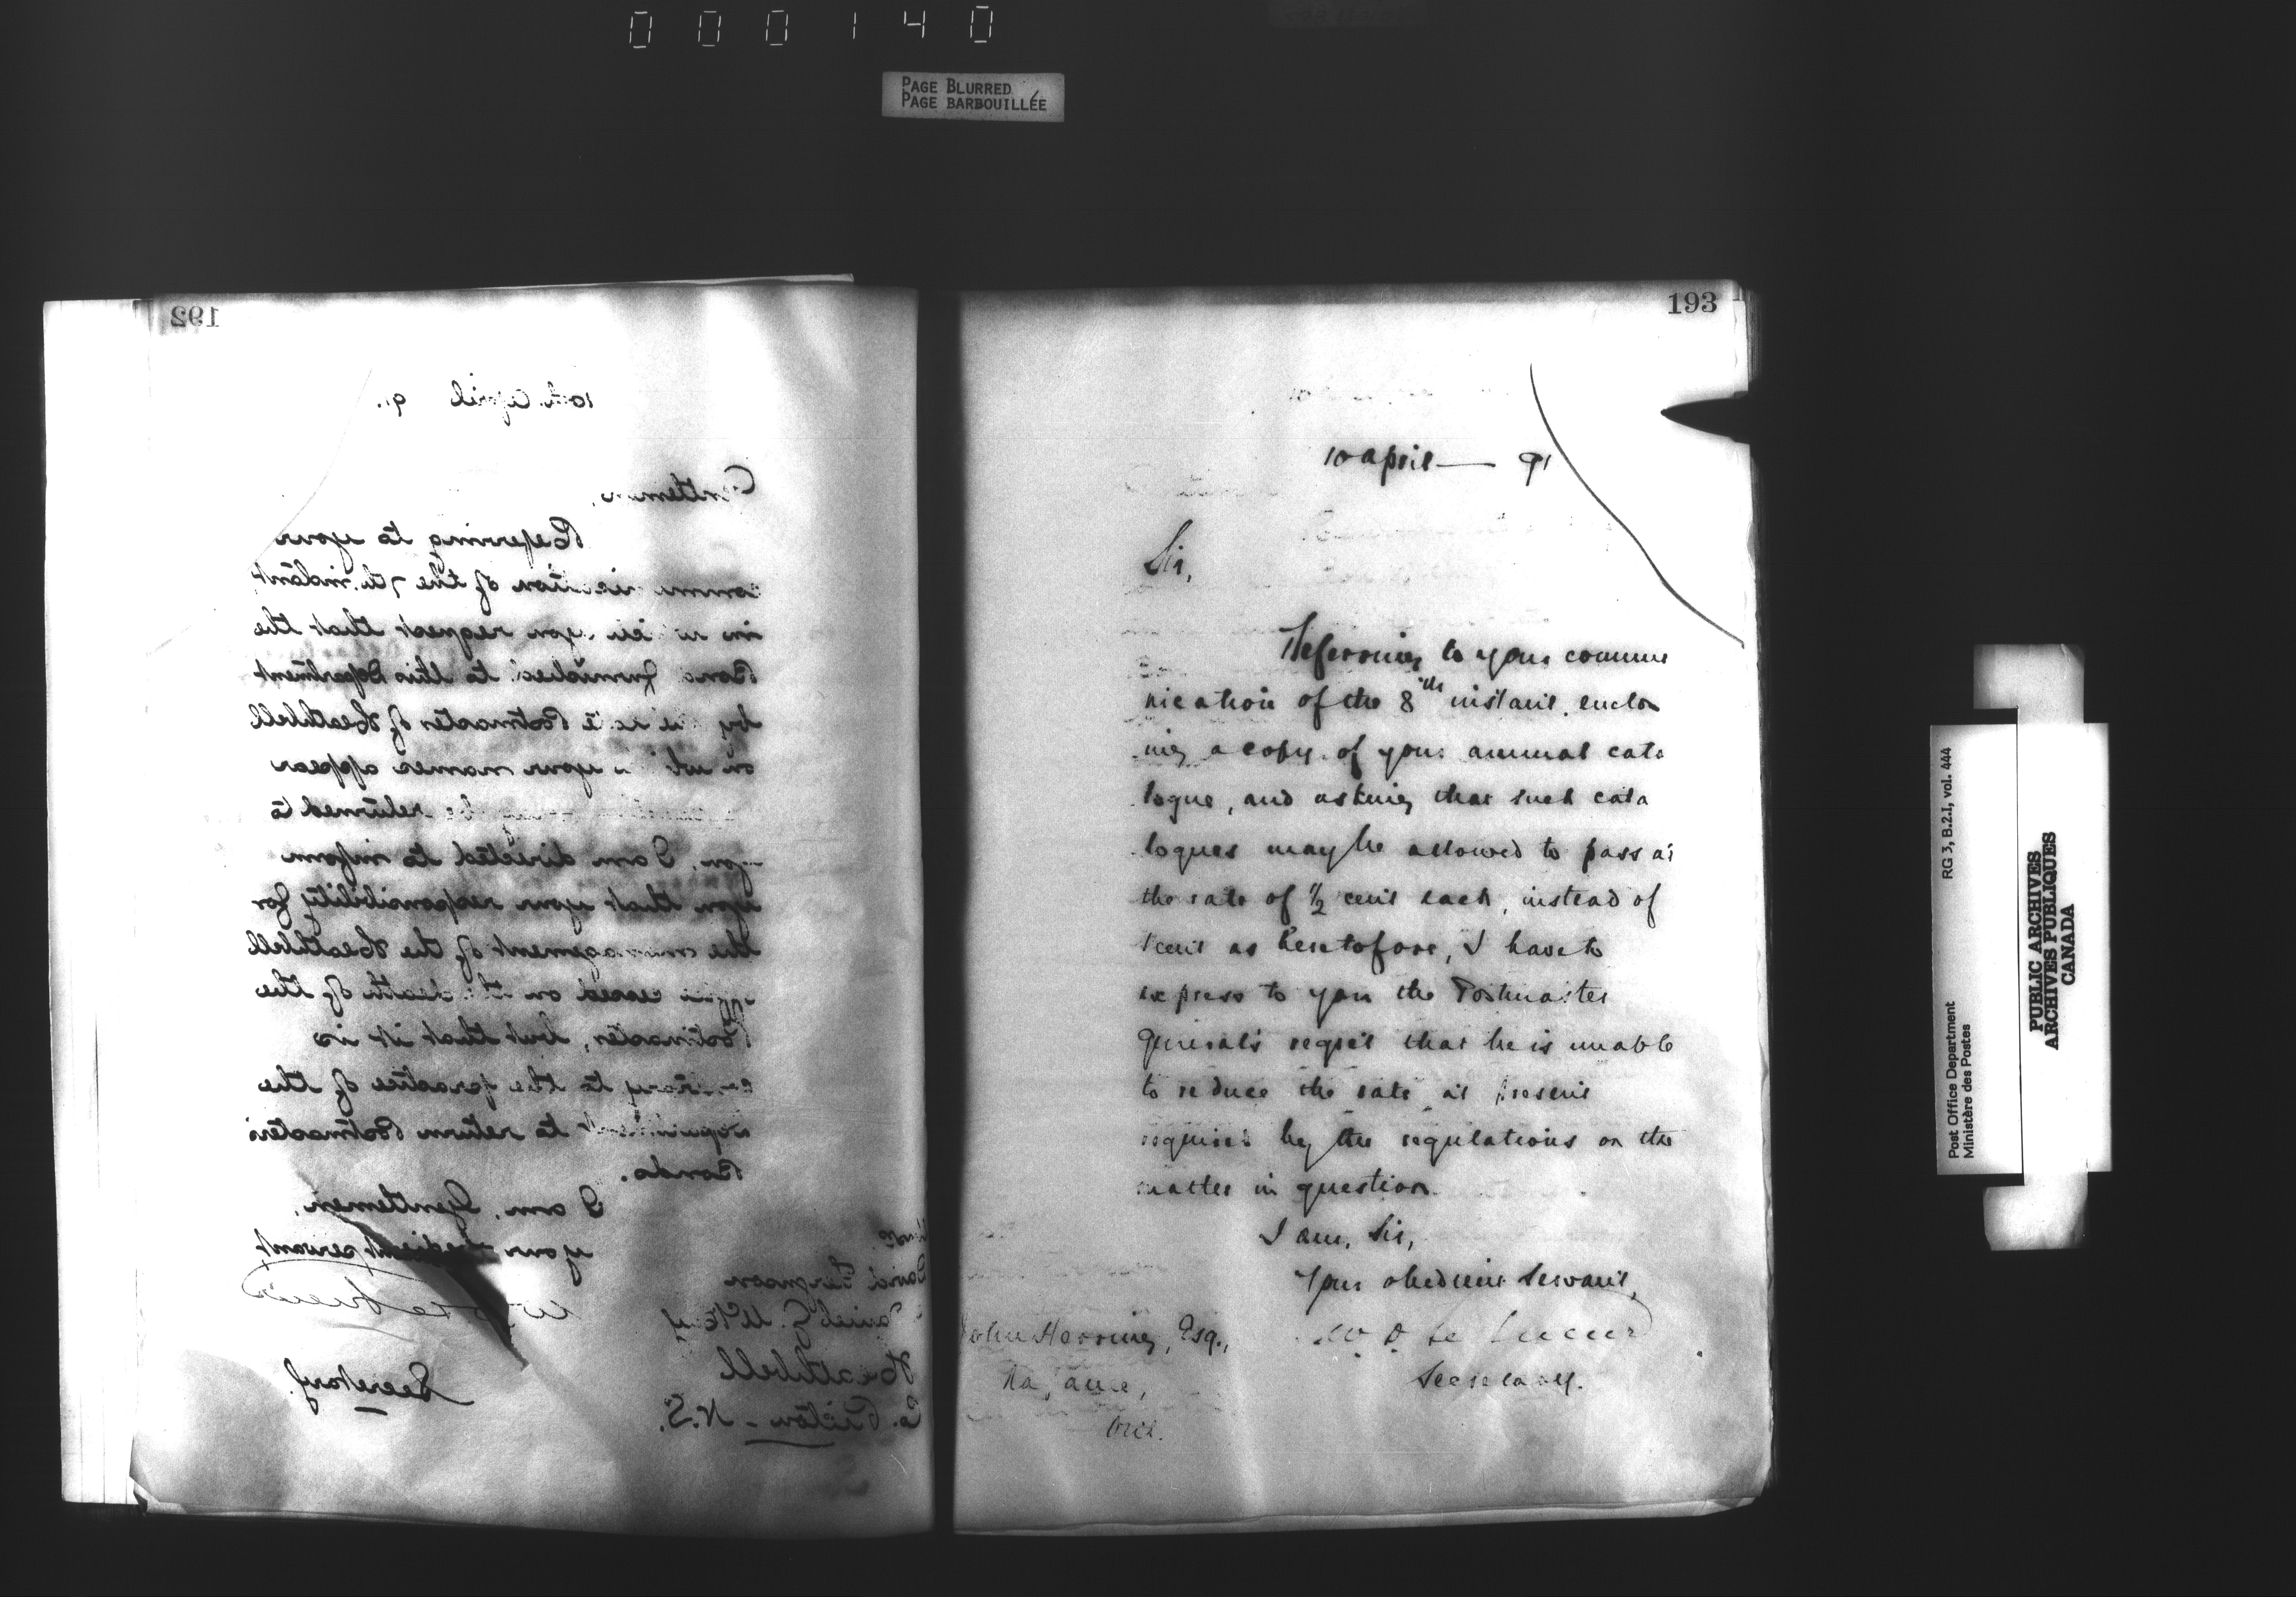 000140
PAGE BLURRED
PAGE BARBOUILLÉE
192
10th April 91.
Gentlemen,
Referring to your
communication of the 7th instant,
in which you request that the
Bond furnished to this Department
by the late Postmaster of Heathbell
on which your names appear
be returned to
you, I am directed to inform
you that your responsibility for
the management of the Heathbell
office ceased on the death of the
Postmaster, but that it is
contrary to the practice of the
Department to return Postmasters'
Bonds.
I am, Gentlemen,
your obedient servant
W D LeSueur
Secretary.
Messrs
David Ferguson
Daniel G. McKay
Heathbell
Co. Pictou - N.S.
193
10 April — 91
Sir,
Referring to your commu
nication of the 8th instant, enclo
ing a copy of your annual cata
logue, and asking that such cata
logues may be allowed to pass at
the rate of 1/2 cent each, instead of
1 cent as heretofore, I have to
express to you the Postmaster
General's regret that he is unable
to reduce the rate at present
required by the regulations on the
matter in question.
I am, Sir,
Your obedient Servant,
W. D. Le Sueur
Secretary.
John Herring, Esq.,
Napanee,
Ont.
Post Office Department
Ministère des Postes
RG 3, B.2.I, vol. 444
PUBLIC ARCHIVES
ARCHIVES PUBLIQUES
CANADA